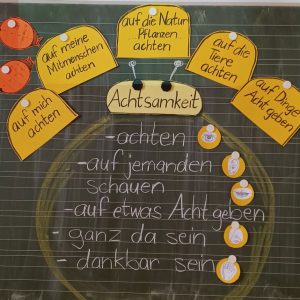 auf mich
achten
auf meine
Mitmenschen
achten
auf die Natur
Pflanzen
achten
auf die
Tiere
achten
auf Dinge
Acht geben
Achtsamkeit
- achten
- auf jemanden
schauen
- auf etwas Acht geben
- ganz da sein
- dankbar sein